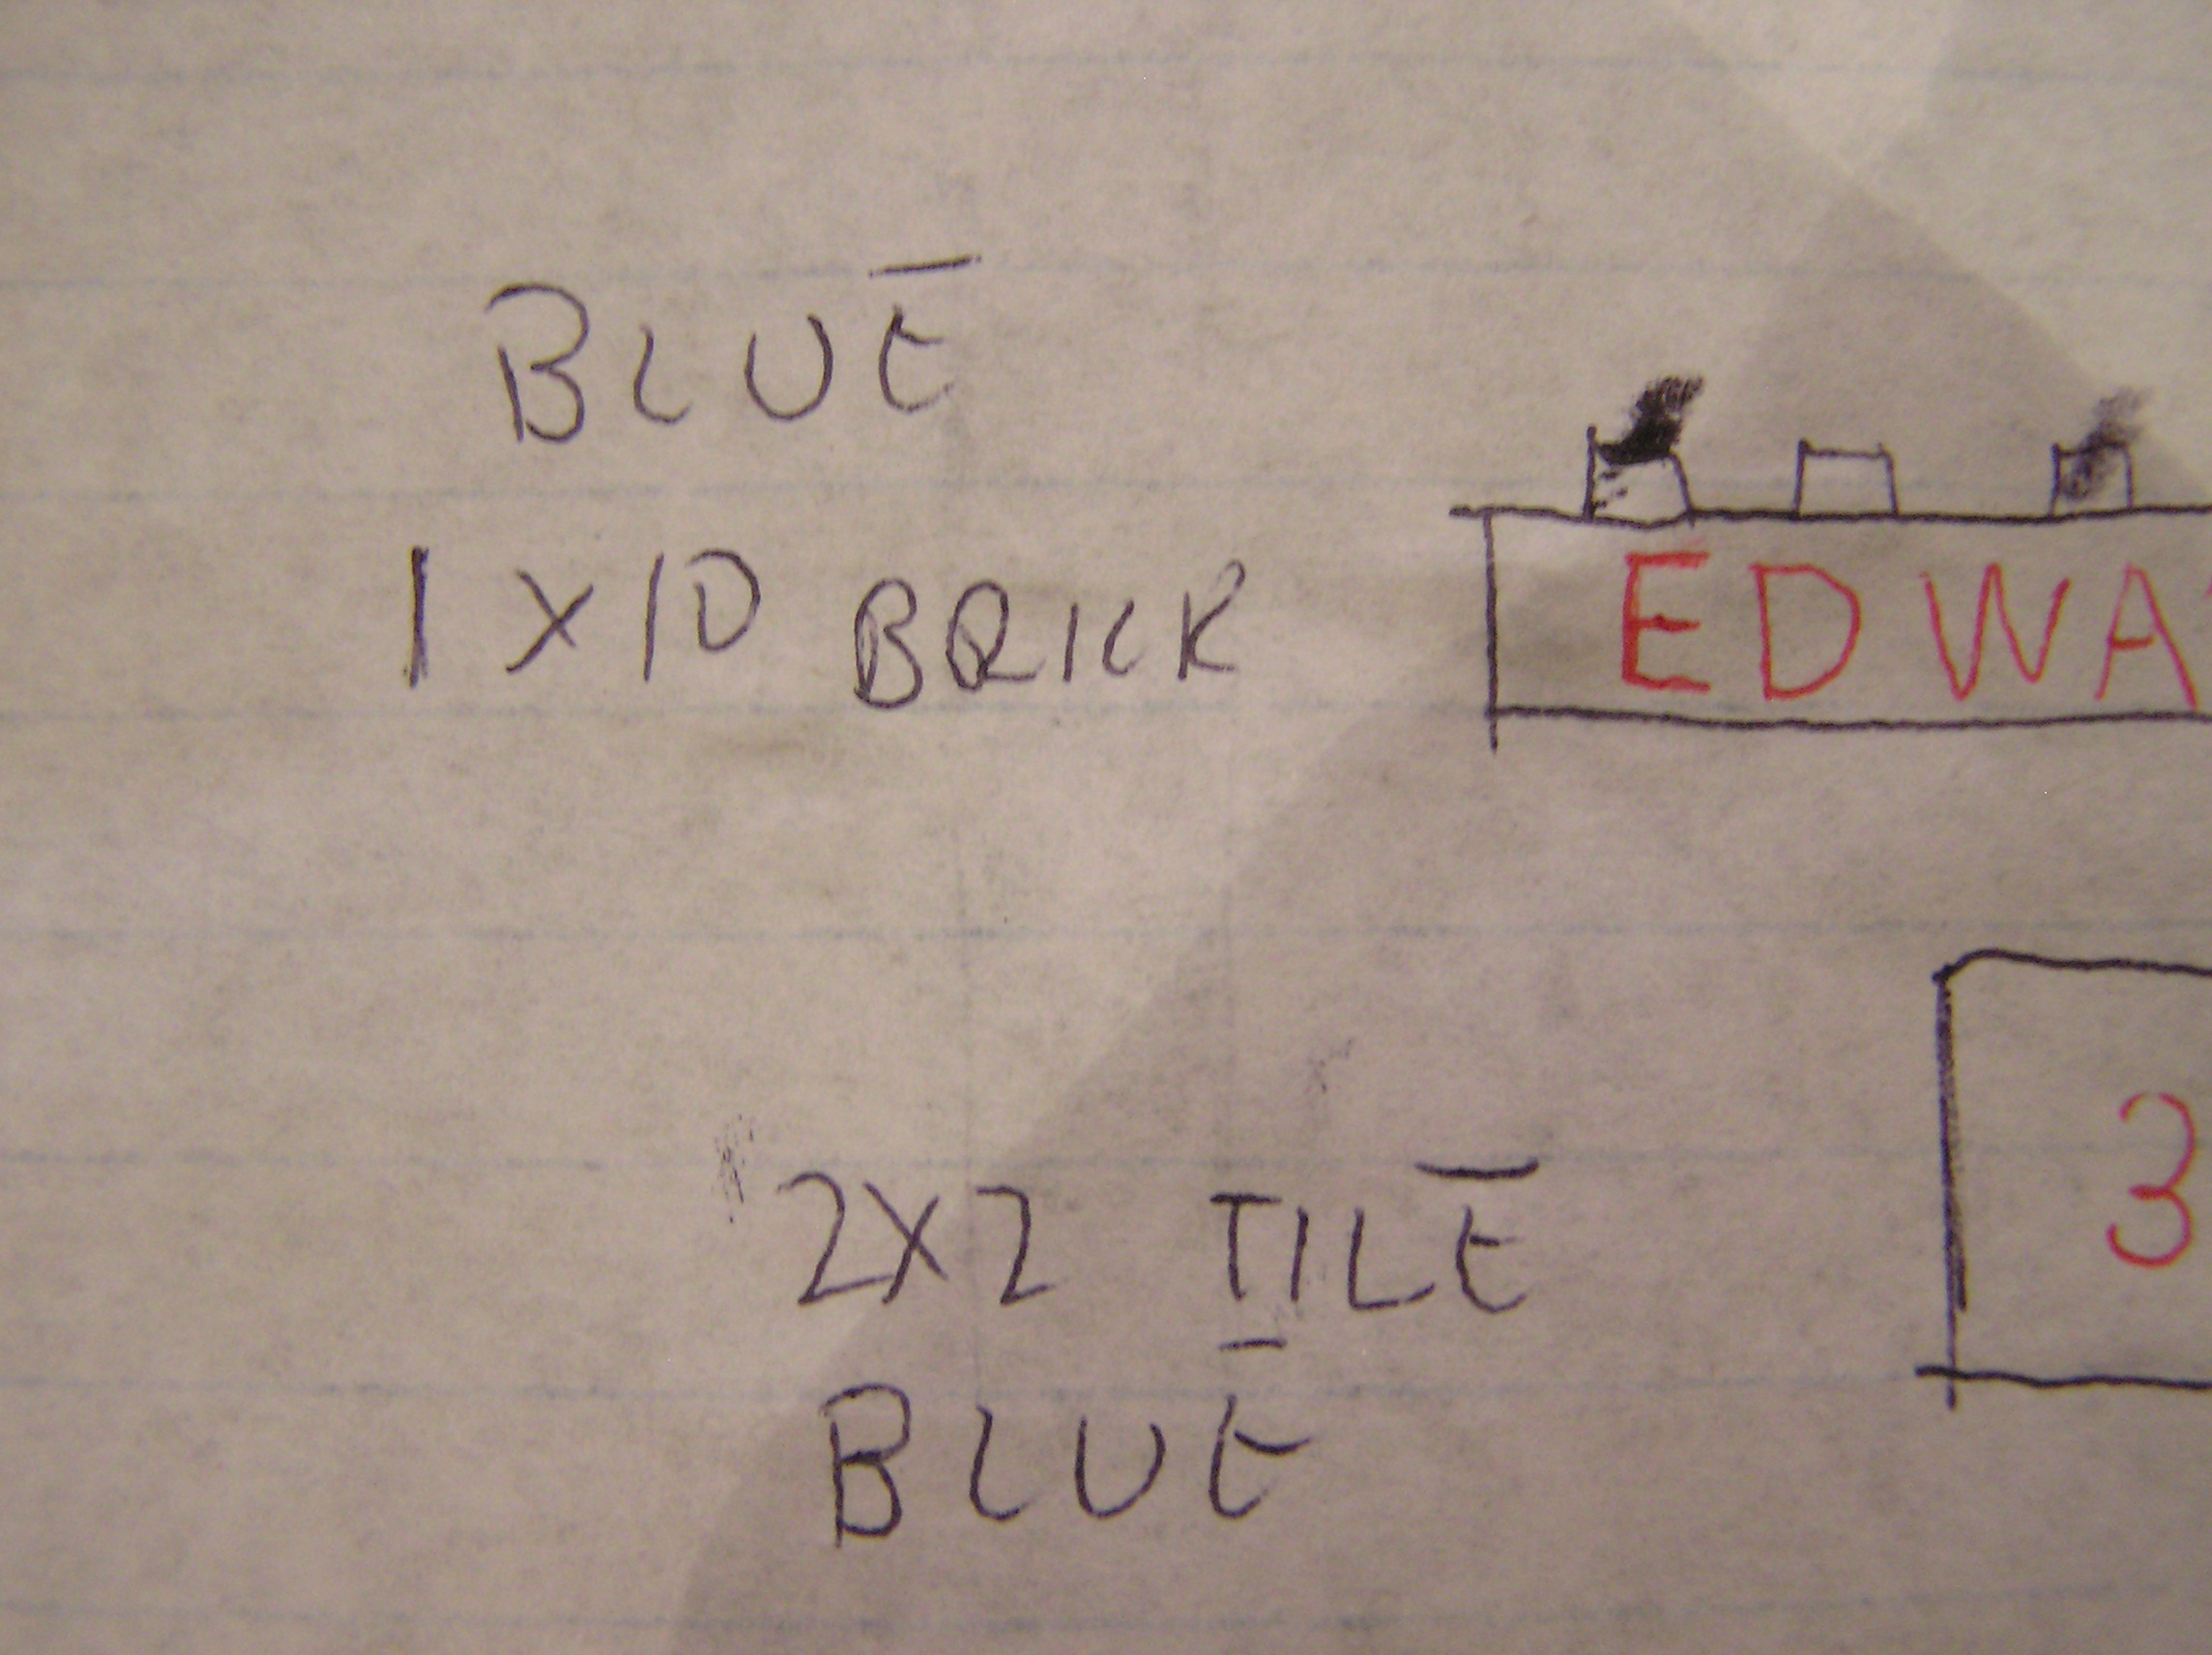 BLUE
1 X 10 BRICK
EDWA
3
2X2 TILE
BLUE